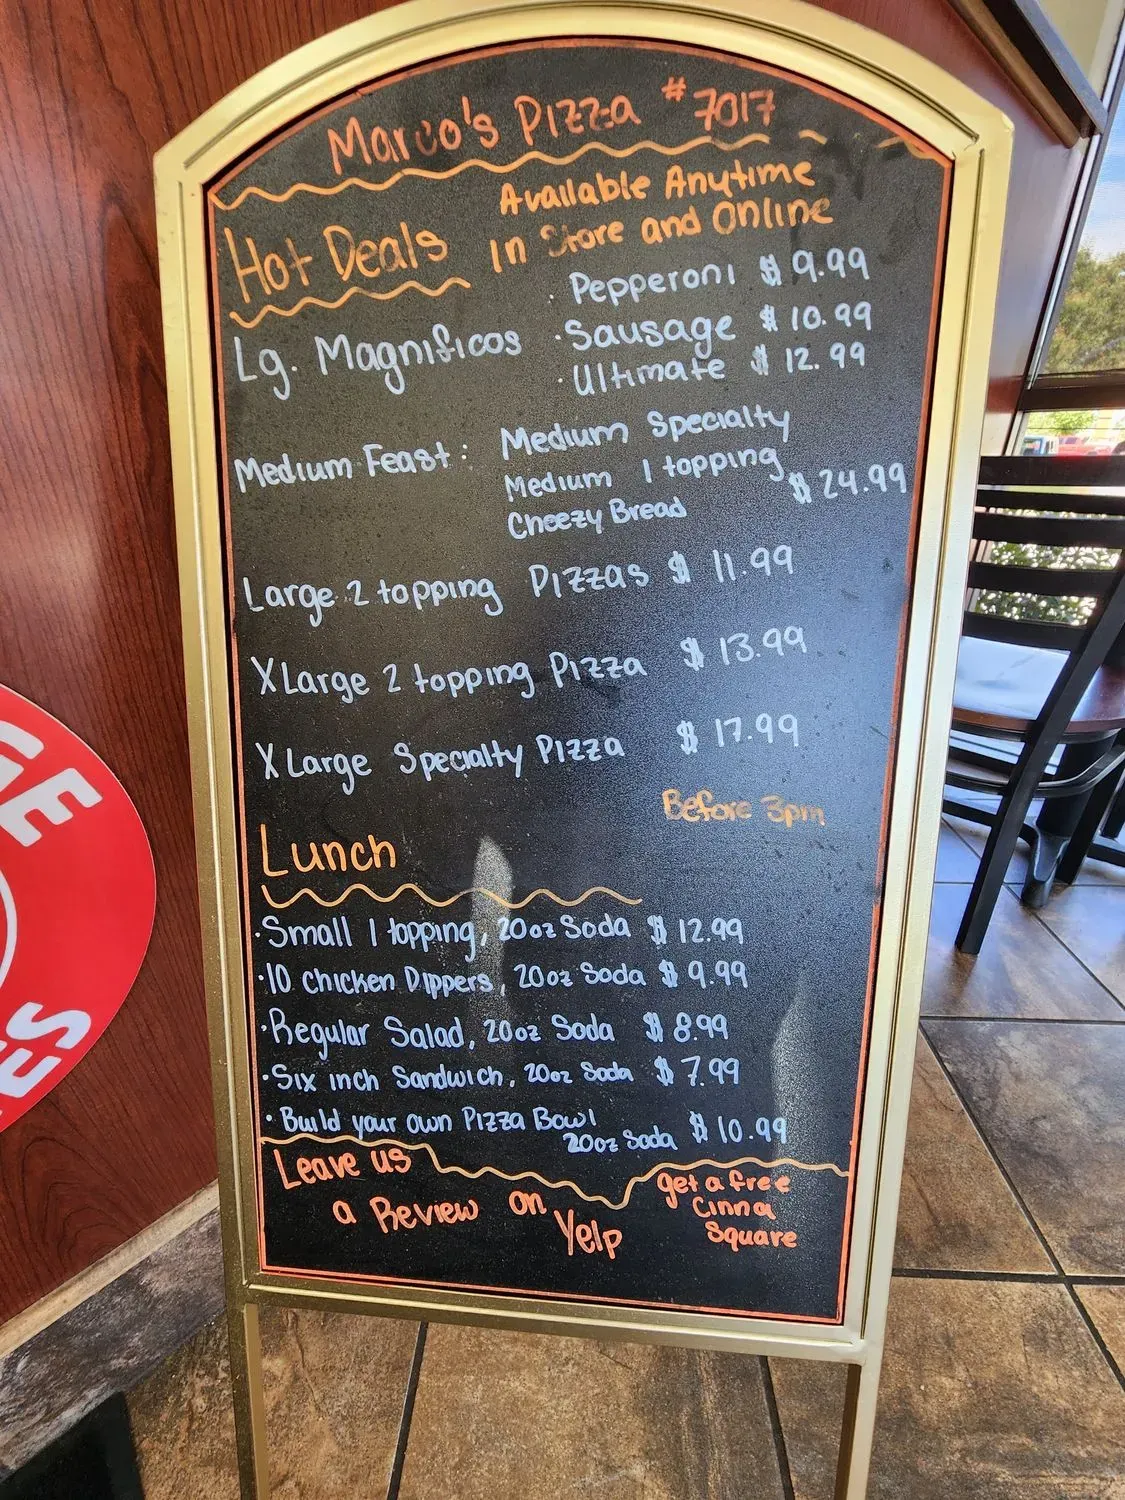 Marco's Pizza #7017
Available Anytime
Hot Deals In Store and Online
Pepperoni $9.99
Lg. Magnificos · Sausage $10.99
· Ultimate $12.99
Medium Feast: Medium Specialty
Medium 1 topping
Cheezy Bread $24.99
Large 2 topping Pizzas $11.99
XLarge 2 topping Pizza $13.99
XLarge Specialty Pizza $17.99
Before 3pm
Lunch
· Small 1 topping, 20oz Soda $12.99
· 10 Chicken Dippers, 20oz Soda $9.99
· Regular Salad, 20oz Soda $8.99
· Six inch Sandwich, 20oz Soda $7.99
· Build your own Pizza Bowl
20oz Soda $10.99
Leave us
a Review on
Yelp
get a free
Cinna
Square